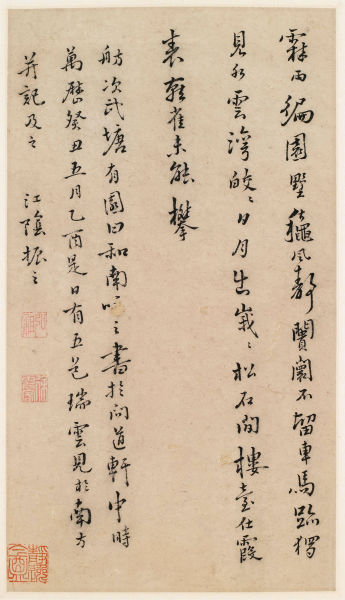 霖雨編園墅 風靜闤闠不留車馬跡獨
見水雲灣皎〻日月出峩〻松石間樓臺仕霞
表雞雀未能攀
舫次武塘有園曰和南 書於問道軒中時
萬歷癸丑五月乙酉是日有五色瑞雲見於南方
并記及之 江陰振之